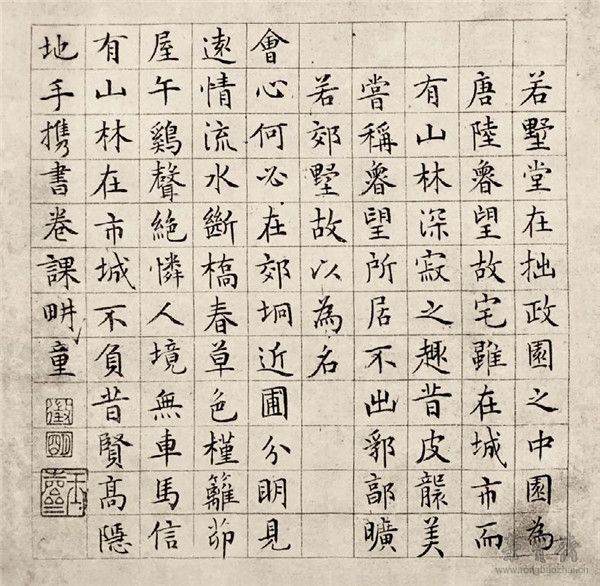 若墅堂在拙政園之中園為
唐陸魯望故宅雖在城市而
有山林深寂之趣昔皮襲美
嘗稱魯望所居不出郛郭曠
若郊墅故以為名
會心何必在郊坰近圃分明見
遠情流水斷橋春草色槿籬茆
屋午鷄聲絕憐人境無車馬信
有山林在市城不負昔賢高隱
地手携書卷課畊童
徵明
www.rongbaozhai.cn